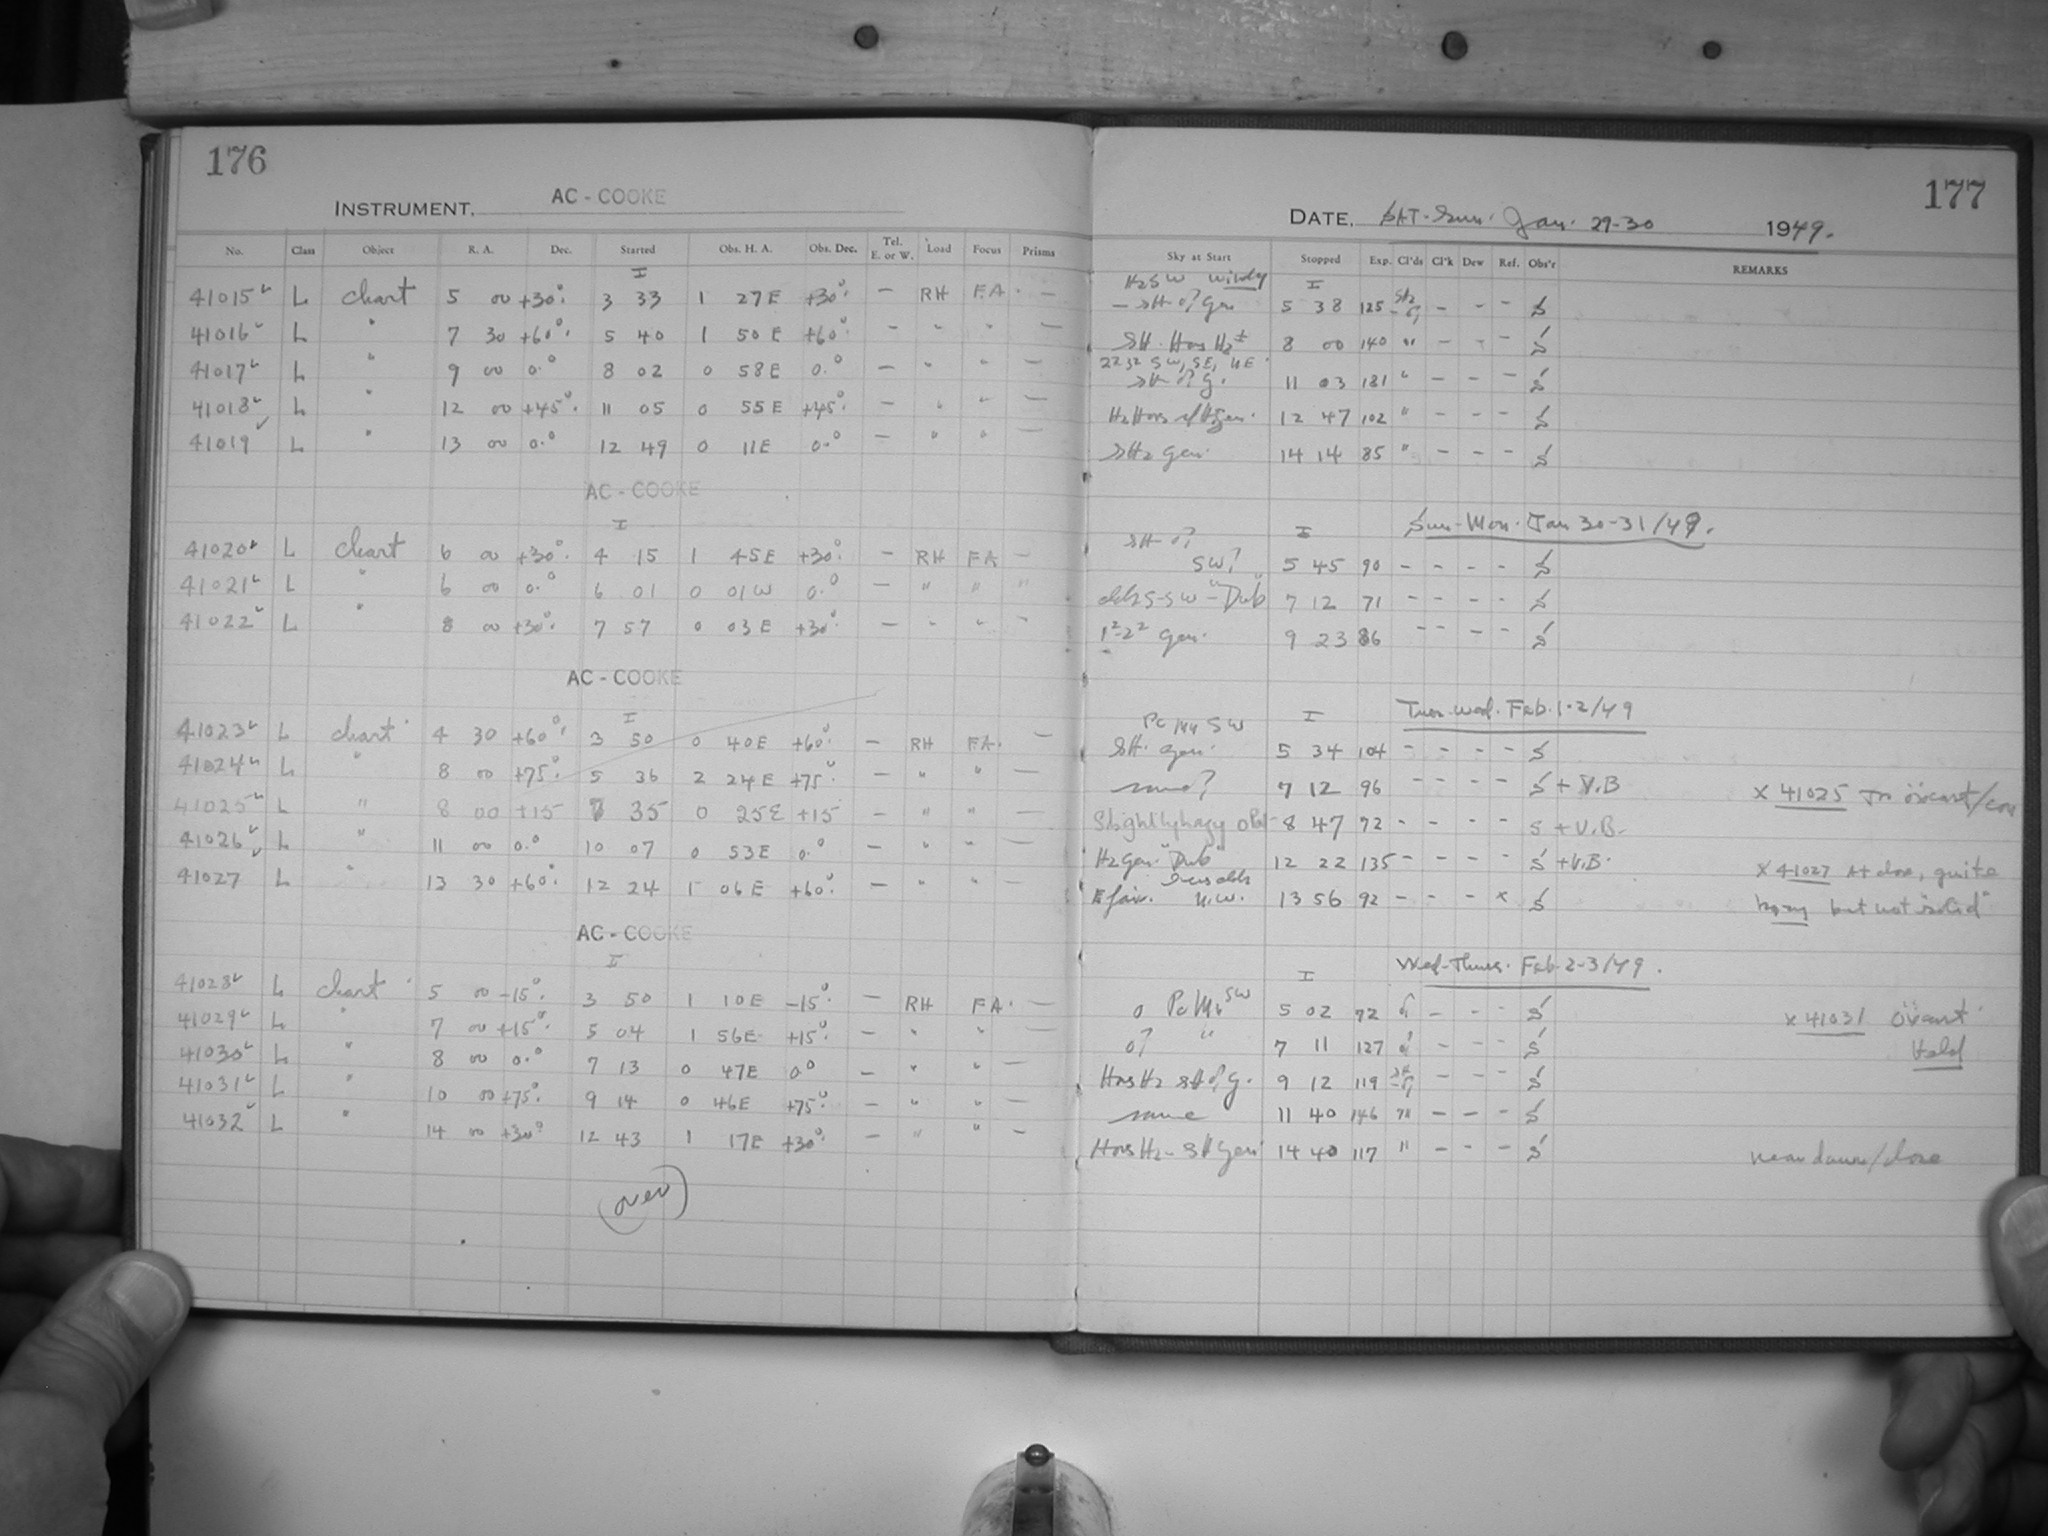 176
INSTRUMENT. AC - COOKE
No. Class Object R. A. Dec. Started Obs. H. A. Obs. Dec. Tel. E. or W. Load Focus Prisms
I
41015 L chart 5 00 +30° 3 33 1 27E +30° - RH FA. -
41016 L " 7 30 +60° 5 40 1 50E +60° - " " -
41017 L " 9 00 0° 8 02 0 58E 0° - " " -
41018 L " 12 00 +45° 11 05 0 55E +45° - " " -
41019 L " 13 00 0° 12 49 0 11E 0° - " " -
AC - COOKE
I
41020 L chart 6 00 +30° 4 15 1 45E +30° - RH FA -
41021 L " 6 00 0° 6 01 0 01W 0° - " " "
41022 L " 8 00 +30° 7 57 0 03E +30° - " " -
AC - COOKE
I
41023 L chart 4 30 +60° 3 50 0 40E +60° - RH FA. -
41024 L " 8 00 +75° 5 36 2 24E +75° - " " -
41025 L " 8 00 +15 7 35 0 25E +15 - " " -
41026 L " 11 00 0° 10 07 0 53E 0° - " " -
41027 L " 13 30 +60° 12 24 1 06E +60° - " " -
AC - COOKE
I
41028 L chart 5 00 -15° 3 50 1 10E -15° - RH FA. -
41029 L " 7 00 +15° 5 04 1 56E +15° - " " -
41030 L " 8 00 0° 7 13 0 47E 0° - " " -
41031 L " 10 00 +75° 9 14 0 46E +75° - " " -
41032 L " 14 00 +30° 12 43 1 17E +30° - " " -
(over)
177
DATE. SAT-Sun. Jan. 29-30 1949.
Sky at Start Stopped Exp. Cl'ds Cl'k Dew Ref. Obs'r REMARKS
H2 SW windy I
5 38 125 - - - S
8 00 140 " - - - S
22 32 SW, SE, NE
11 03 181 " - - - S
12 47 102 " - - - S
SH2 Gen. 14 14 85 " - - - S
Sun-Mon. Jan 30-31/49.
I
SW? 5 45 90 - - - - S
S-SW - "Dub" 7 12 71 - - - - S
1²-2² Gen. 9 23 86 - - - - S
Tues-Wed. Feb. 1-2/49
SW I
SH. Gen. 5 34 104 - - - - S
same? 7 12 96 - - - - S + V.B
x 41025
Slightly hazy 8 47 72 - - - - S + V.B.
H2 Gen. "Dub" 12 22 135 - - - - S + V.B.
x 41027 At close, quite
E fair. N.W. 13 56 92 - - - x S
hazy but not solid"
Wed-Thurs. Feb. 2-3/49.
I
SW 5 02 72 - - - S
x 41031
0? " 7 11 127 - - - S
Held
9 12 119 - - - S
same 11 40 146 " - - - S
14 40 117 " - - - S
near dawn/close